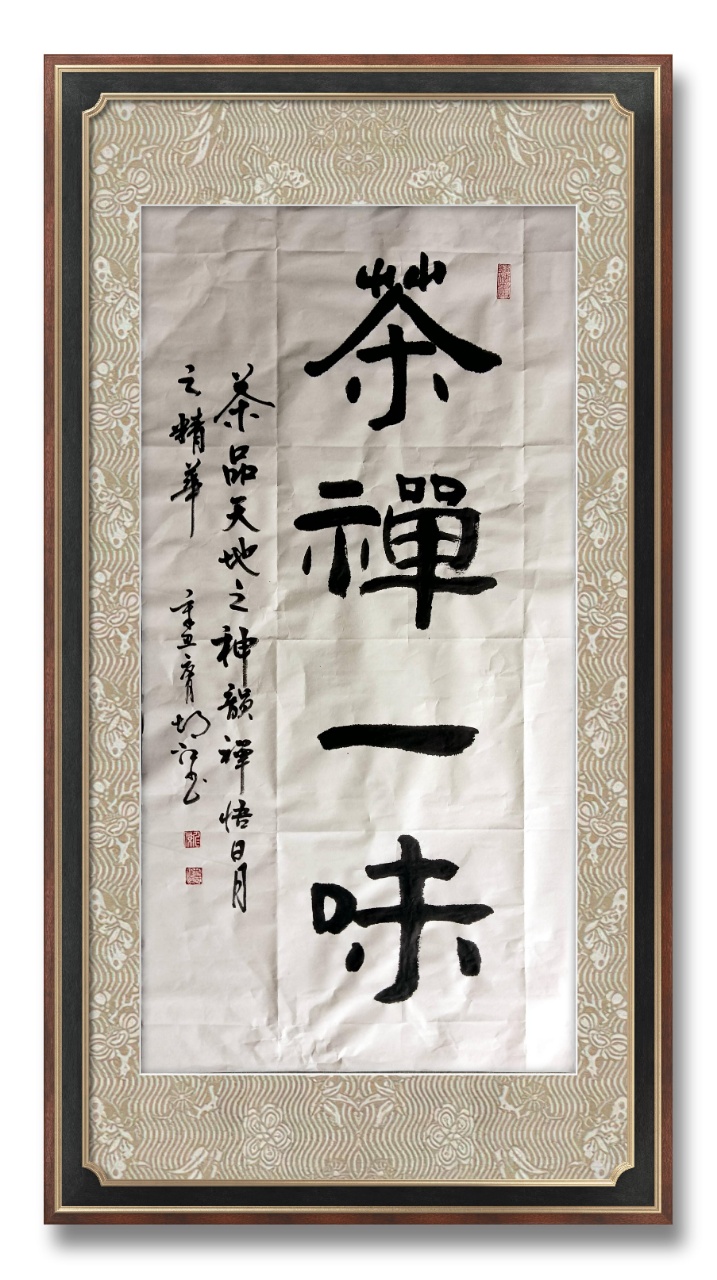 茶禪一味
茶品天地之神韻禪悟日月
之精華 辛丑